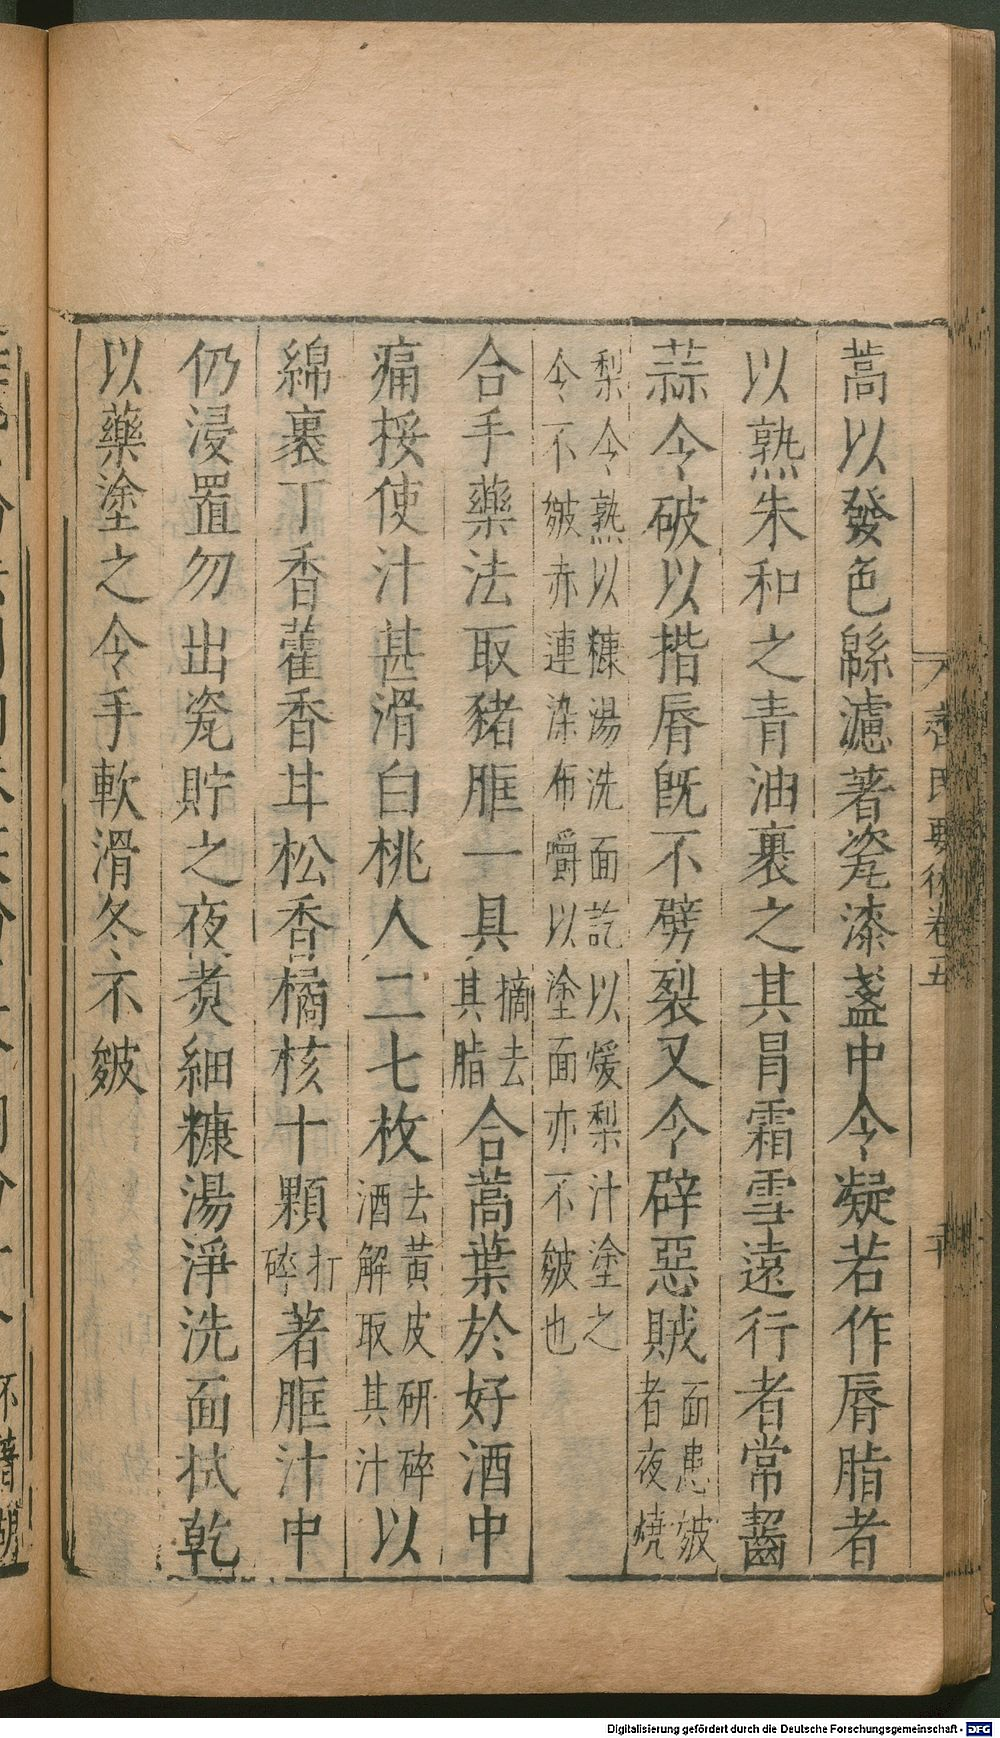 蒿以發色緜濾著瓷漆盞中令凝若作脣脂者
以熟朱和之青油裹之其冒霜雪遠行者常齧
蒜令破以揩脣既不劈裂又令辟惡賊面患皴者夜燒
梨令熟以糠湯洗面訖以煖梨汁塗之
令不皴赤連染布嚼以塗面亦不皴也
合手藥法取豬胵一具摘去其脂合蒿葉於好酒中
痛挼使汁甚滑白桃人二七枚去黃皮研碎酒解取其汁以
綿裹丁香藿香甘松香橘核十顆打碎著胵汁中
仍浸置勿出瓷貯之夜煮細糠湯淨洗面拭乾
以藥塗之令手軟滑冬不皴
齊民要術卷五
Digitalisierung gefördert durch die Deutsche Forschungsgemeinschaft - DFG